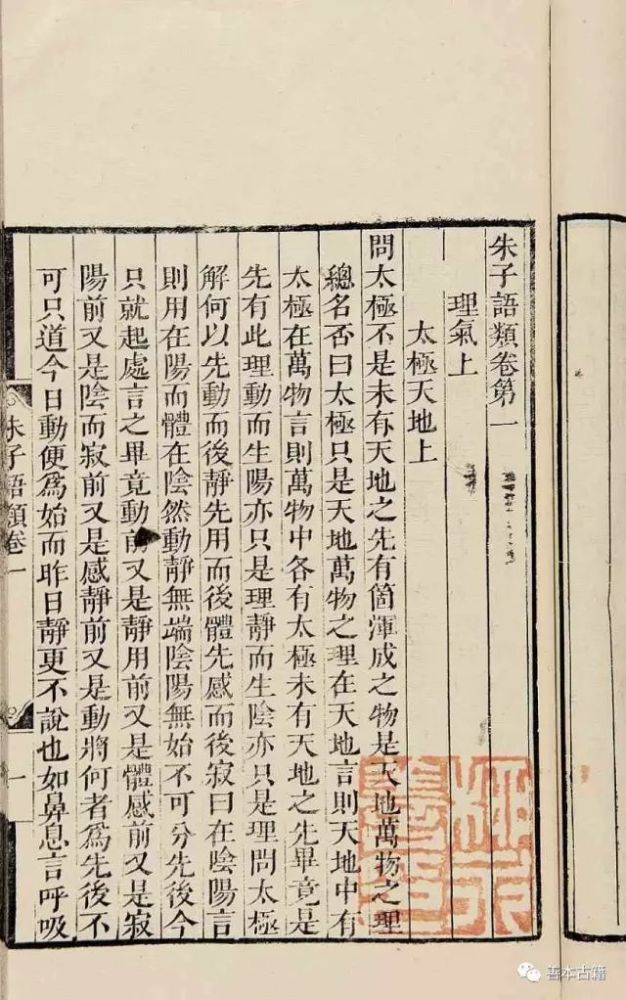 朱子語類卷第一
理氣上
太極天地上
問太極不是未有天地之先有箇渾成之物是天地萬物之理
總名否曰太極只是天地萬物之理在天地言則天地中有
太極在萬物言則萬物中各有太極未有天地之先畢竟是
先有此理動而生陽亦只是理靜而生陰亦只是理問太極
解何以先動而後靜先用而後體先感而後寂曰在陰陽言
則用在陽而體在陰然動靜無端陰陽無始不可分先後今
只就起處言之畢竟動前又是靜用前又是體感前又是寂
陽前又是陰而寂前又是感靜前又是動將何者為先後不
可只道今日動便為始而昨日靜更不說也如鼻息言呼吸
朱子語類卷一
一
善本古籍